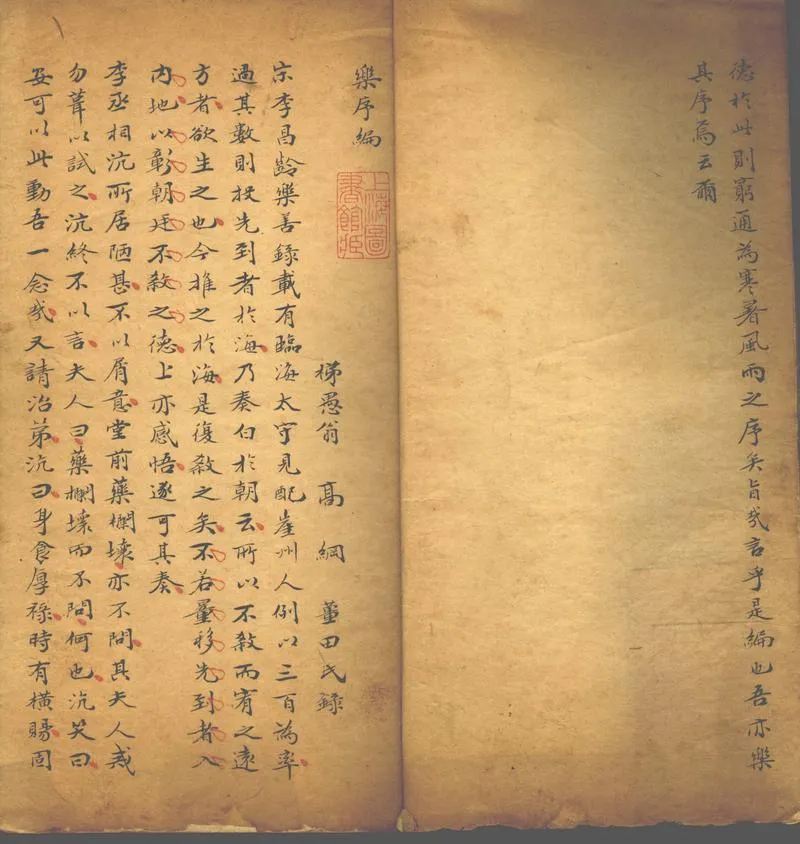 德於此則窮通為寒暑風雨之序矣旨哉言乎是編也吾亦樂
其序焉云爾
樂序編
上海圖書館藏
梯愚翁 高綱 蕫田氏錄
宗李昌齡樂善錄載有臨海太守見配崖州人例以三百為率
過其數則投先到者於海乃奏白於朝云所以不殺而宥之遠
方者欲生之也今推之於海是復殺之矣不若量移先到者入
內地以彰朝廷不殺之德上亦感悟遂可其奏
李丞相沆所居陋甚不以屑意堂前藥欄壞亦不問其夫人戒
勿葺以試之沆終不以言夫人曰藥欄壞而不問何也沆笑曰
安可以此動吾一念哉又請治第沆曰身食厚祿時有橫賜固